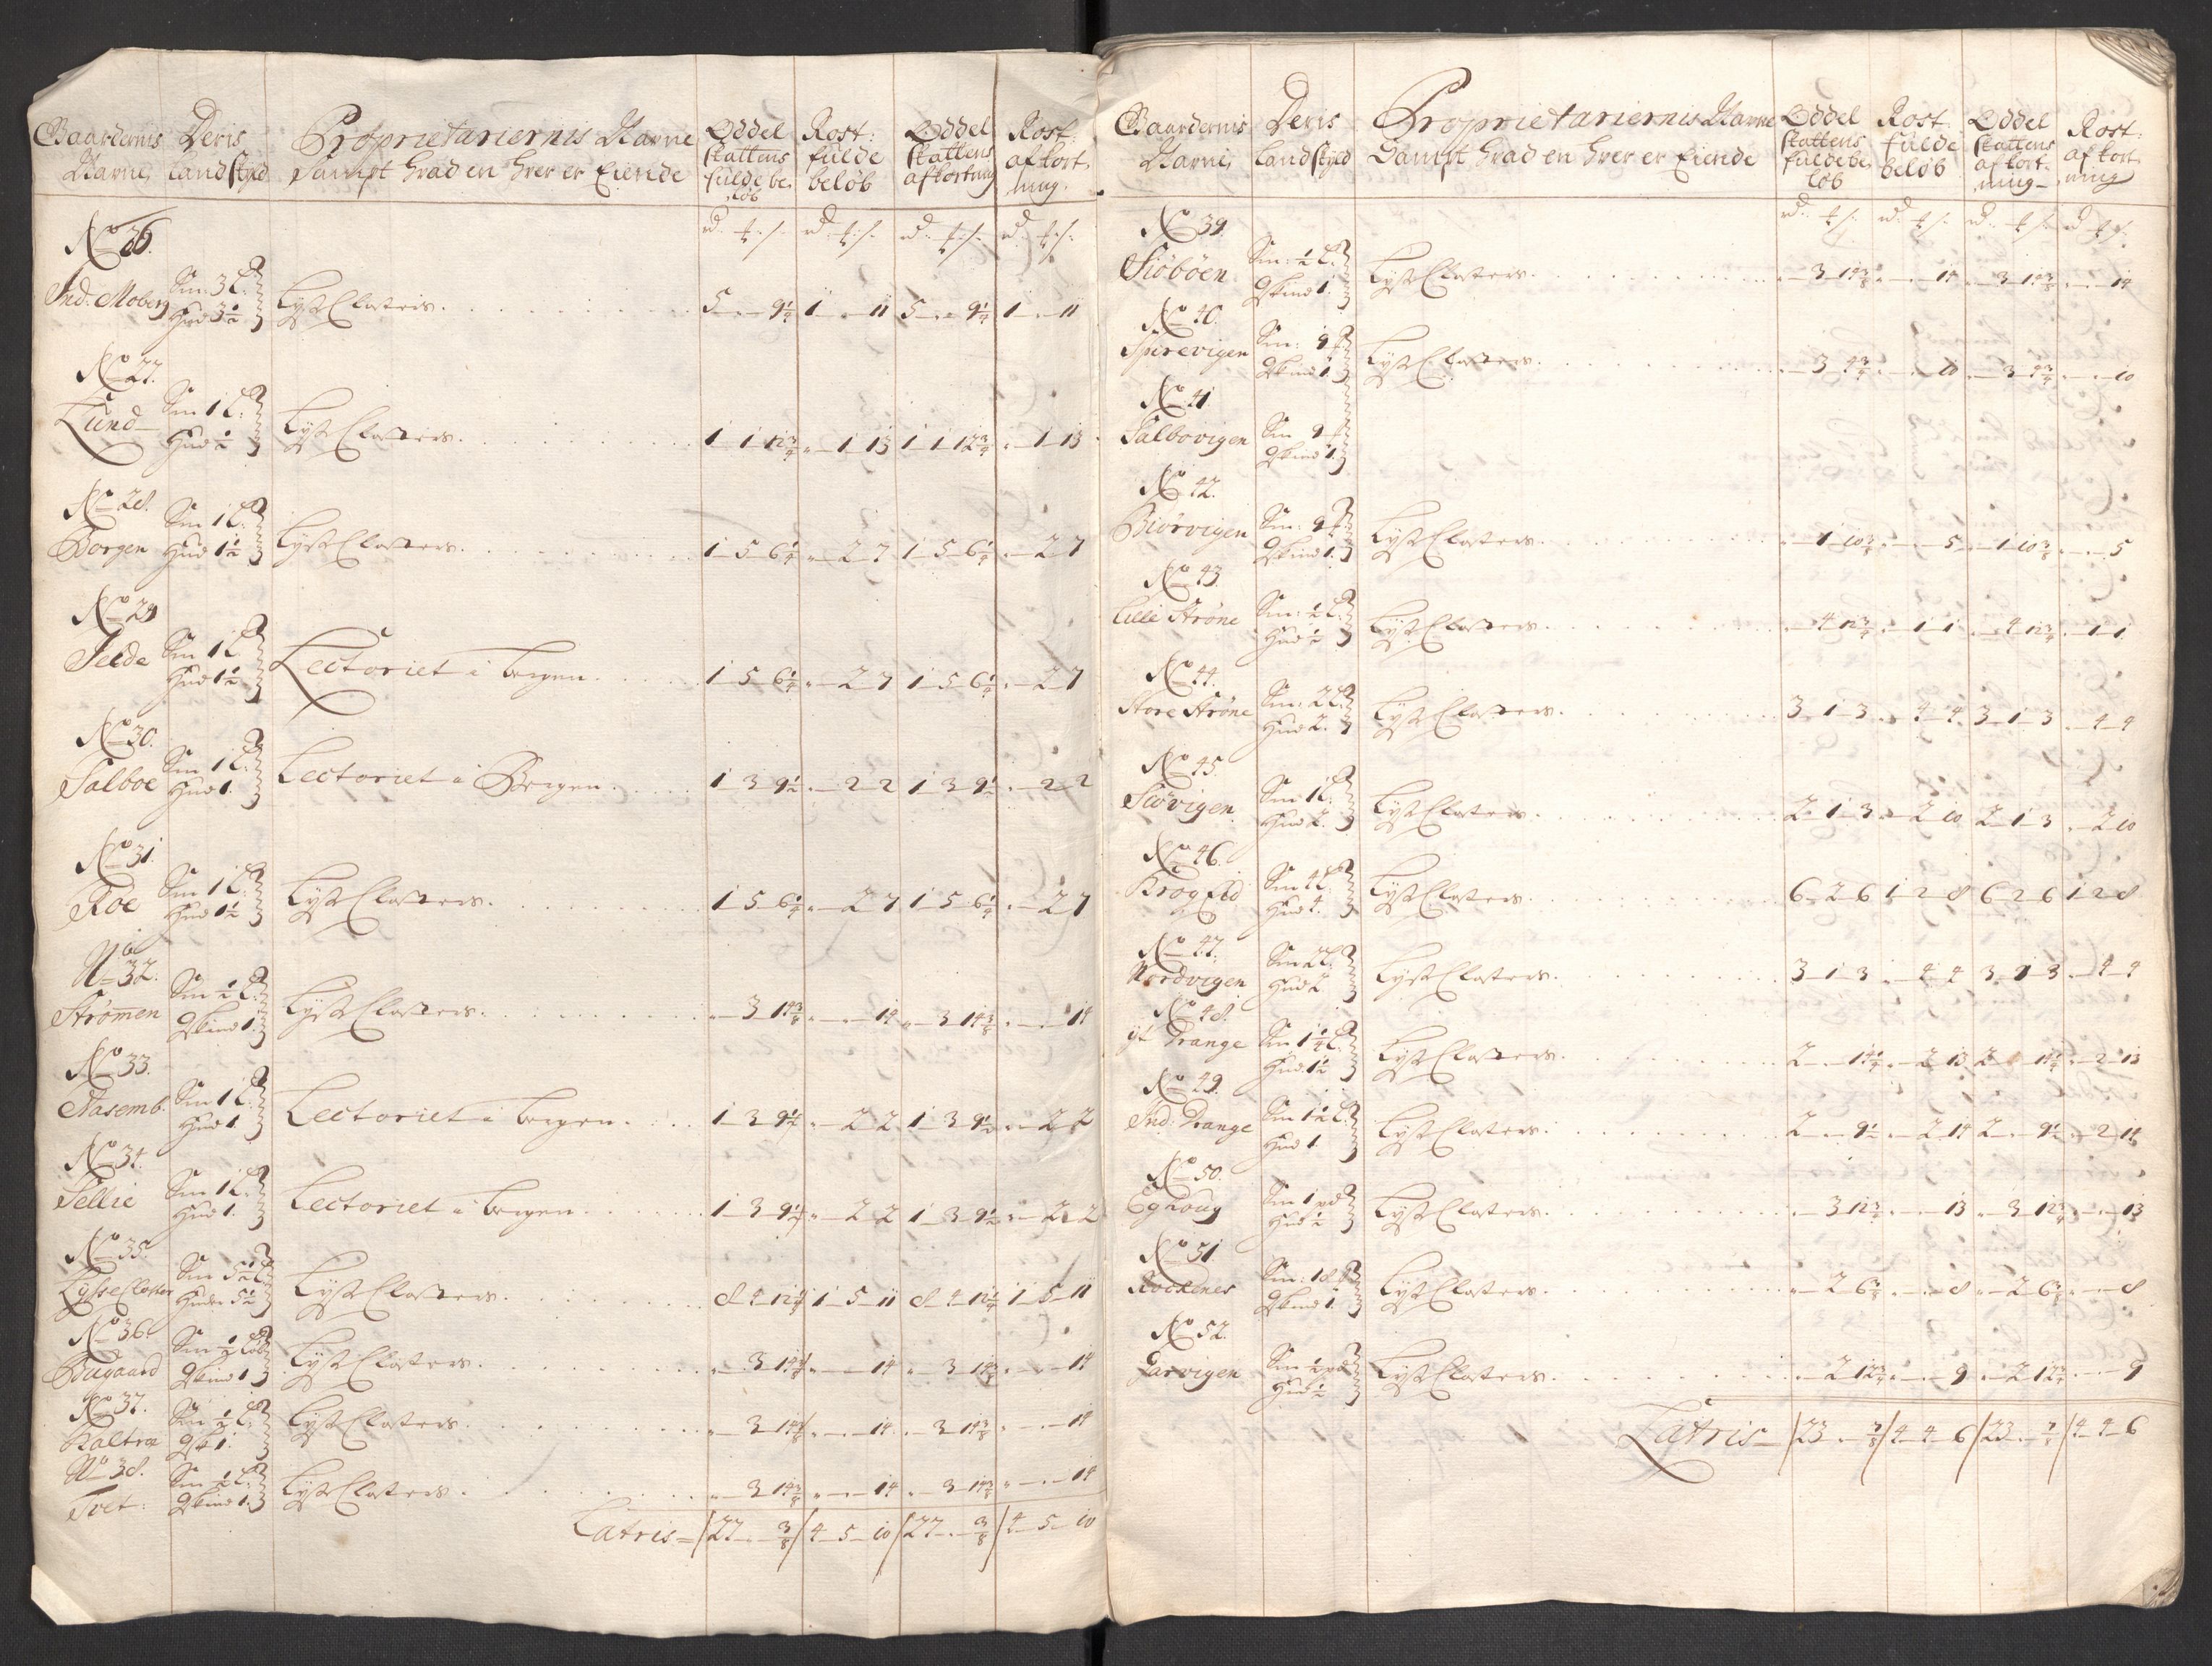 Gaardernis Nafne
Deris Landskyld
Proprietariernis Nafne Sampt hvad en hver er Eiende
Oddel skattens fulde be- løb
Rost: fulde beløb
Oddel skattens afkortning
Rost: afkort- ning.
No 26.
Ind: Moberg Sm: 3 L: Hud 3½ Lyse Closters 5 - 9¼ 1 - 11 5 - 9¼ 1 - 11
No 27.
Lund Sm 1 L: Hud ½ Lyse Closters 1 1 12¾ - 1 13 1 1 12¾ - 1 13
No 28.
Borgen Sm 1 L: Hud 1½ Lyse Closters 1 5 6¼ - 2 7 1 5 6¼ - 2 7
No 29
Selde Sm 1 L Hud 1½ Lectoriet i bergen 1 5 6¼ - 2 7 1 5 6¼ - 2 7
No 30.
Salboe Sm 1 L: Hud 1. Lectoriet i Bergen 1 3 9½ - 2 2 1 3 9½ - 2 2
No 31.
Roe Sm 1 L: Hud 1½ Lyse Closters 1 5 6¼ - 2 7 1 5 6¼ - 2 7
No 32.
Strømen Sm ½ L: Gskind 1. Lyse Closters - 3 14⅜ - - 14 - 3 14⅜ - - 14
No 33.
Aasemb. Sm 1 L: Hud 1. Lectoriet i bergen 1 3 9½ - 2 2 1 3 9½ - 2 2
No 34.
Tellie Sm 1 L: Hud 1. Lectoriet i bergen 1 3 9½ - 2 2 1 3 9½ - 2 2
No 35.
Lyssecloster Sm 5½ L Huder 5½ Lyse Closters 8 4 12¼ 1 5 11 8 4 12¼ 1 5 11
No 36.
Bugaard Sm ½ Løb Gskind 1 Lyse Closters - 3 14⅜ - - 14 - 3 14⅜ - - 14
No 37.
Kaltræ Sm ½ L: Gsk 1. Lyse Closters - 3 14⅜ - - 14 - 3 14⅜ - - 14
No 38.
Tvet: Sm ½ L: Gskind 1. Lyse Closters - 3 14⅜ - - 14 - 3 14⅜ - - 14
Latris = 27 - ⅜ 4 5 10 27 - ⅜ 4 5 10
Gaardernis Nafne
Deris Landskyld
Proprietariernis Nafne Sampt hvad en hver er Eiende
Oddel skattens fulde be- løb
Rost fulde beløb
Oddel skattens afkort- ning
Rost: afkort- ning
No 39.
Siøbøen Sm: ½ L: Gskind 1. Lyse Closters - 3 14⅜ - - 14 - 3 14⅜ - - 14
No 40.
Spirevigen Sm: 9 Gskind 1 Lyse Closters - 3 4¾ - - 10 - 3 4¾ - - 10
No 41.
Salbovigen Sm 9 Gskind 1.
No 42.
Biørvigen Sm: 9 Gskind 1. Lyse Closters - 1 10⅜ - - 5 - 1 10⅜ - - 5
No 43.
Lille Strøne Sm: ½ L: Hud ½ Lyse Closters - 4 12¾ - 1 1 - 4 12¾ - 1 1
No 44.
Store Strøne Sm: 2 L: Hud 2. Lyse Closters 3 1 3 - 4 4 3 1 3 - 4 4
No 45.
Scøvigen Sm 1 L: Hud 2. Lyse Closters 2 1 3 - 2 10 2 1 3 - 2 10
No 46.
Krogeid Sm 4 L: Hud 4. Lyse Closters 6 2 6 1 2 8 6 2 6 1 2 8
No 47.
Nordvigen Sm 2 L: Hud 2 Lyse Closters 3 1 3 - 4 4 3 1 3 - 4 4
No 48.
yt Drange Sm 1¼ L: Hud 1½ Lyse Closters 2 - 14¼ - 2 13 2 - 14¼ - 2 13
No 49.
Ind: Drange Sm 1½ L: Hud 1. Lyse Closters 2 - 9½ - 2 14 2 - 9½ - 2 14
No 50.
Eghoug Sm 1 pd Hud ½ Lyse Closters - 3 12¾ - - 13 - 3 12¾ - - 13
No 51
Rockenes Sm: 18 Gskind 1. Lyse Closters - 2 6¾ - - 8 - 2 6¾ - - 8
No 52.
Garvigen Sm ½ pd Hud ½ Lyse Closters - 2 12¾ - - 9 - 2 12¾ - - 9
Latris = 23 - ⅞ 4 4 6 23 - ⅞ 4 4 6